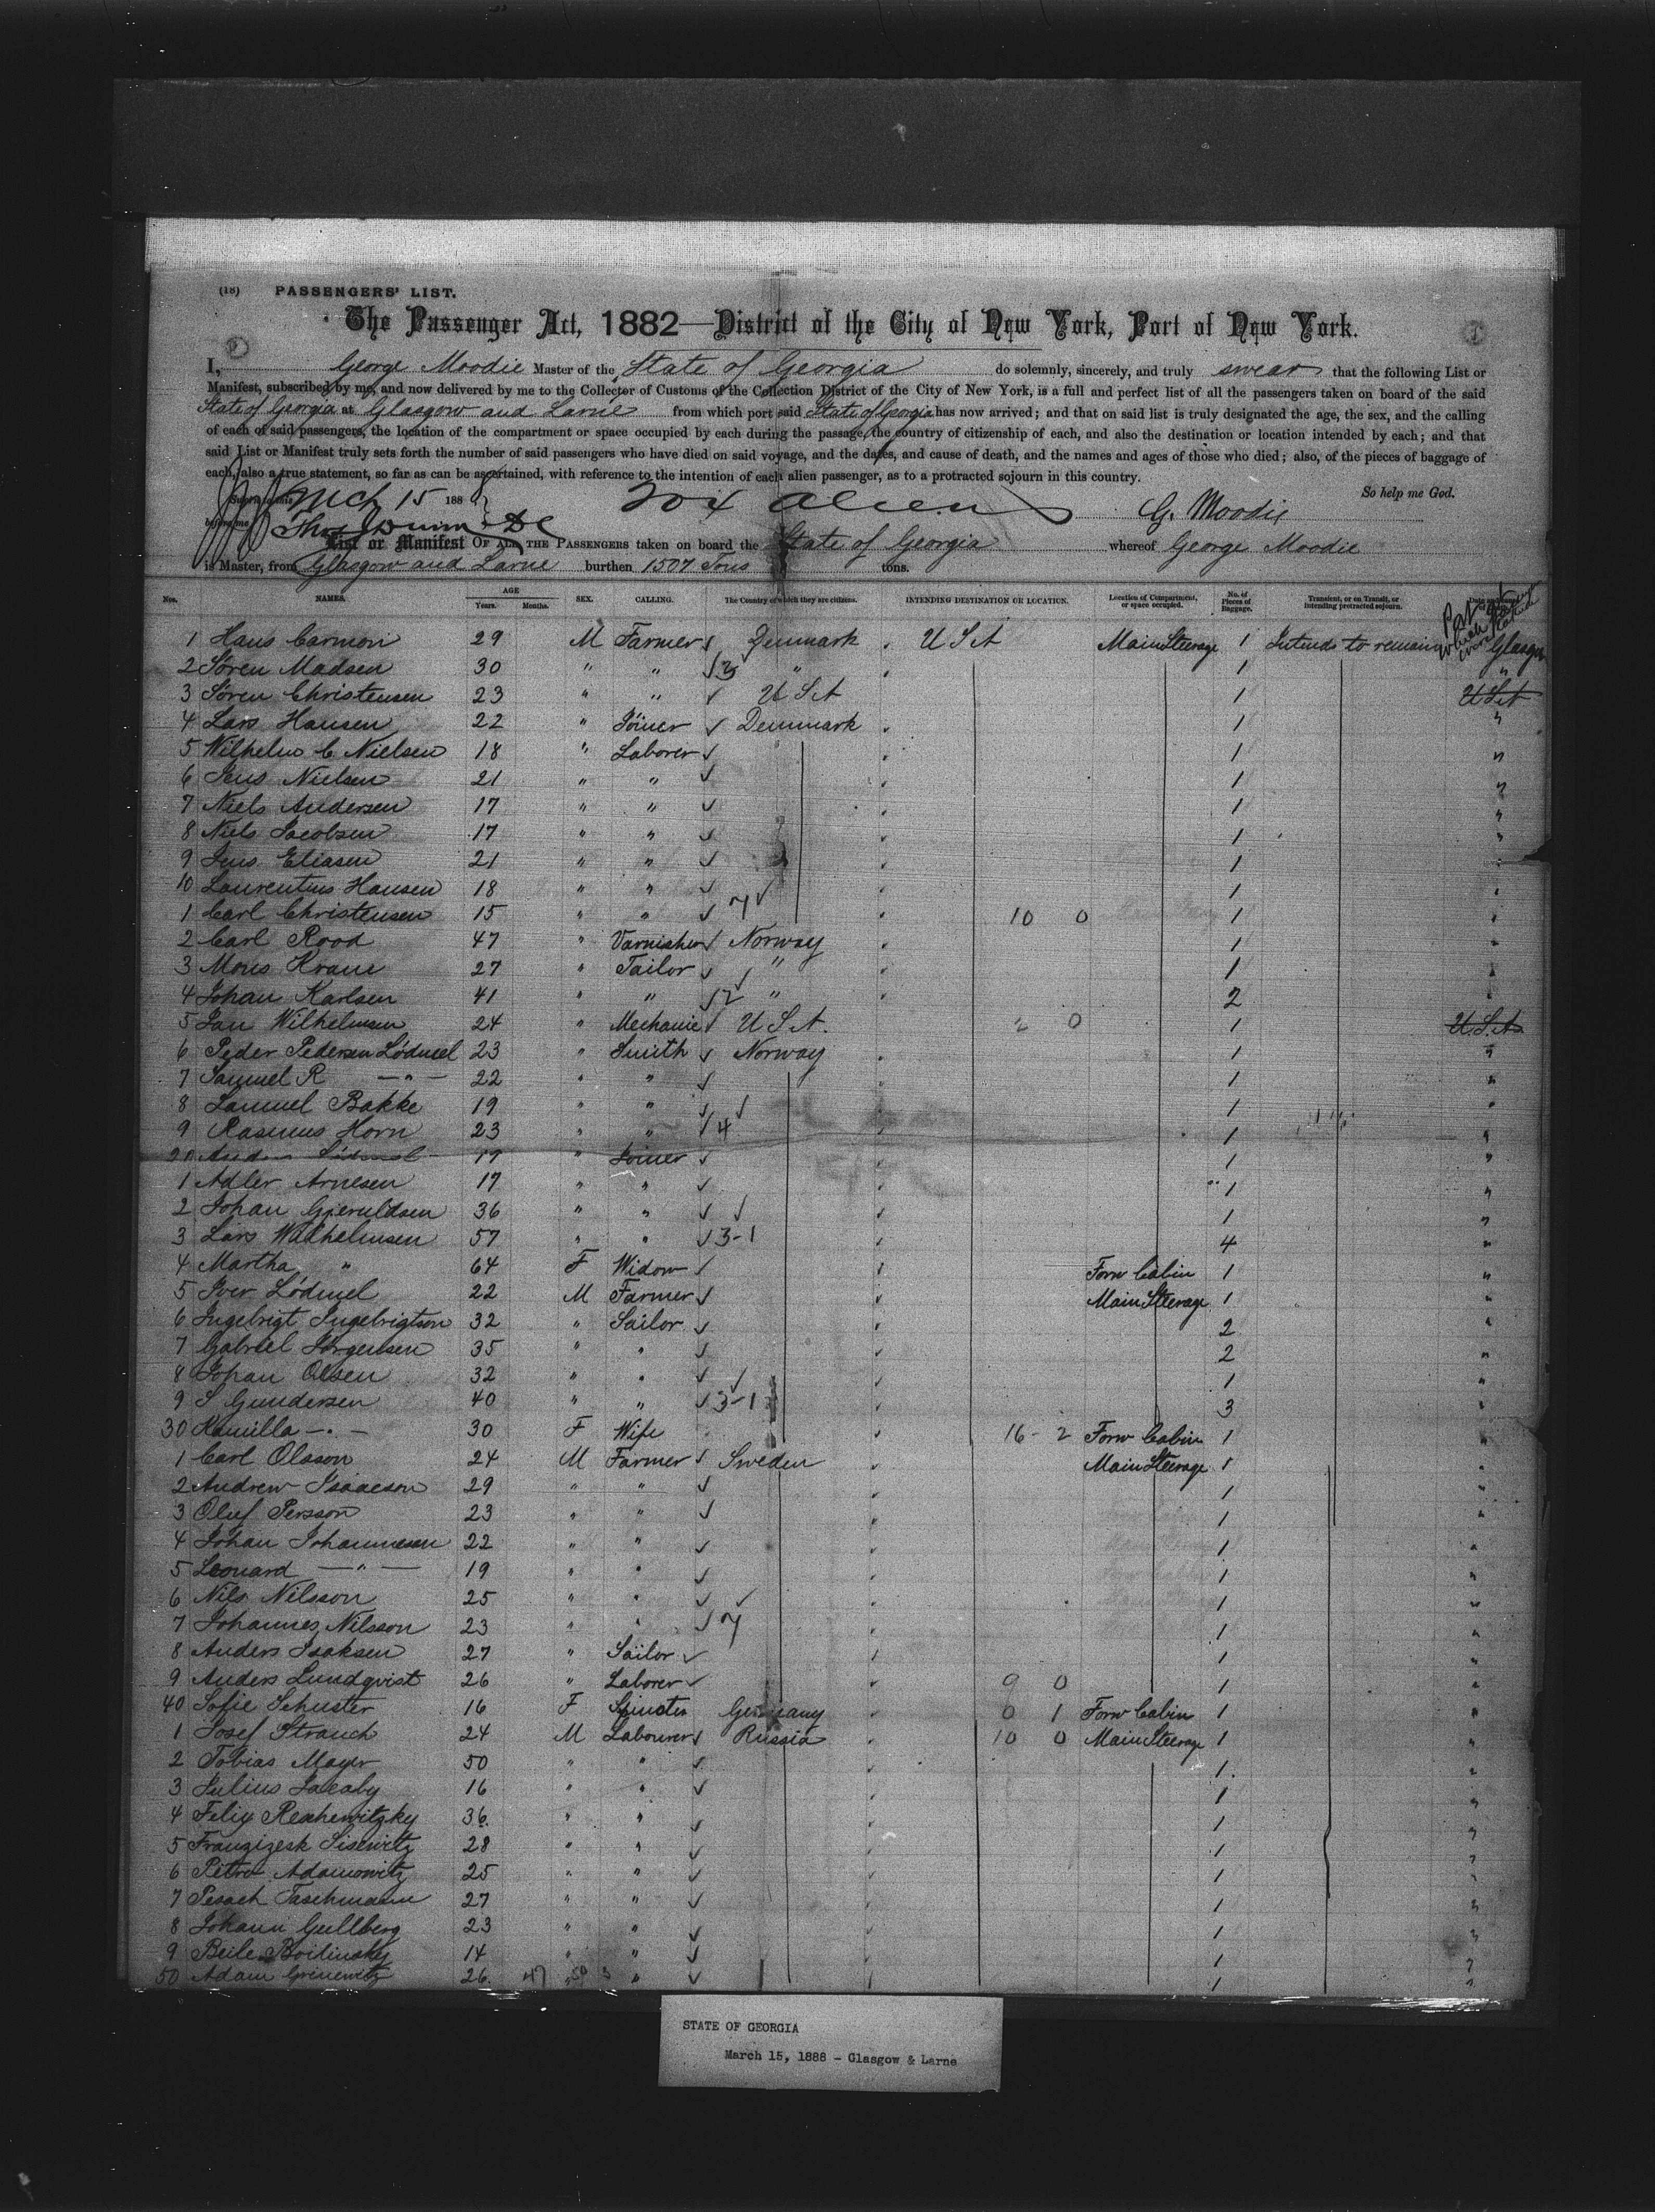 (18) PASSENGERS' LIST.
The Passenger Act, 1882—District of the City of New York, Port of New York.
I, George Moodie Master of the State of Georgia do solemnly, sincerely, and truly swear that the following List or
Manifest, subscribed by me, and now delivered by me to the Collector of Customs of the Collection District of the City of New York, is a full and perfect list of all the passengers taken on board of the said
State of Georgia at Glasgow and Larne from which port said State of Georgia has now arrived; and that on said list is truly designated the age, the sex, and the calling
of each of said passengers, the location of the compartment or space occupied by each during the passage, the country of citizenship of each, and also the destination or location intended by each; and that
said List or Manifest truly sets forth the number of said passengers who have died on said voyage, and the dates, and cause of death, and the names and ages of those who died; also, of the pieces of baggage of
each, also a true statement, so far as can be ascertained, with reference to the intention of each alien passenger, as to a protracted sojourn in this country.
So help me God.
Mch 15 1888
before me
204 Aliens G. Moodie
List or Manifest OF ALL THE PASSENGERS taken on board the State of Georgia whereof George Moodie
is Master, from Glasgow and Larne burthen 1507 Tons tons.
Nos. NAMES. AGE Years. Months. SEX. CALLING. The Country of which they are citizens. INTENDING DESTINATION OR LOCATION. Location of Compartment, or space occupied. No. of Pieces of Baggage. Transient, or on Transit, or intending protracted sojourn.
1 Hans Carmon 29 M Farmer Denmark U S A Main Steerage 1 Intends to remain Glasgow
2 Sören Madsen 30 " " 3 " 1 "
3 Sören Christensen 23 " " U S A 1 U S A
4 Lars Hansen 22 " Joiner Denmark 1 "
5 Wilhelm C Nielsen 18 " Laborer 1 "
6 Jens Nielsen 21 " " 1 "
7 Niels Andersen 17 " " 1 "
8 Niels Jacobsen 17 " " 1 "
9 Jens Eliasen 21 " " 1 "
10 Laurentius Hansen 18 " " 1 "
1 Carl Christensen 15 " " 7 10 0 1 "
2 Carl Rood 47 " Varnisher Norway 1 "
3 Mons Krane 27 " Tailor " 1 "
4 Johan Karlsen 41 " " 2 " 2 "
5 Jan Wilhelmsen 24 " Mechanic U S A. 2 0 1 U.S.A.
6 Peder Pedersen Lödmel 23 " Smith Norway 1 "
7 Samuel R — " — 22 " " 1 "
8 Samuel Bakke 19 " " 1 "
9 Rasmus Horn 23 " " 4 1 "
20 17 " Joiner 1 "
1 Adler Arnesen 17 " " 1 "
2 Johan Gjeruldsen 36 " " 1 "
3 Lars Wilhelmsen 57 " " 3-1 4 "
4 Martha " 64 F Widow Forw Cabin 1 "
5 Iver Lödmel 22 M Farmer Main Steerage 1 "
6 Ingebrigt Ingebrigtson 32 " Sailor 2 "
7 Gabriel Jörgensen 35 " " 2 "
8 Johan Olsen 32 " " 1 "
9 S Gundersen 40 " " 3-1 3 "
30 Kamilla — " — 30 F Wife 16 - 2 Forw Cabin 1 "
1 Carl Olason 24 M Farmer Sweden Main Steerage 1 "
2 Andrew Isaacson 29 " " 1 "
3 Oluf Persson 23 " " 1 "
4 Johan Johannesen 22 " " 1 "
5 Leonard — " — 19 " " 1 "
6 Nils Nilsson 25 " " 1 "
7 Johannes Nilsson 23 " " 7 1 "
8 Anders Isaksen 27 " Sailor 1 "
9 Anders Lundqvist 26 " Laborer 9 0 1 "
40 Sofie Schuster 16 F Spinster Germany 0 1 Forw Cabin 1 "
1 Josef Strauch 24 M Labourer Russia 10 0 Main Steerage 1 "
2 Tobias Mayer 50 " " 1 "
3 Julius Jacoby 16 " " 1 "
4 Felix 36 " " 1 "
5 28 " " 1 "
6 Petro Adamowitz 25 " " 1 "
7 Pesach Taschmann 27 " " 1 "
8 Johann Gullberg 23 " " 1 "
9 Beile 14 " " 1 "
50 Adam 26 47 " 50 3 " 1 "
STATE OF GEORGIA
March 15, 1888 - Glasgow & Larne